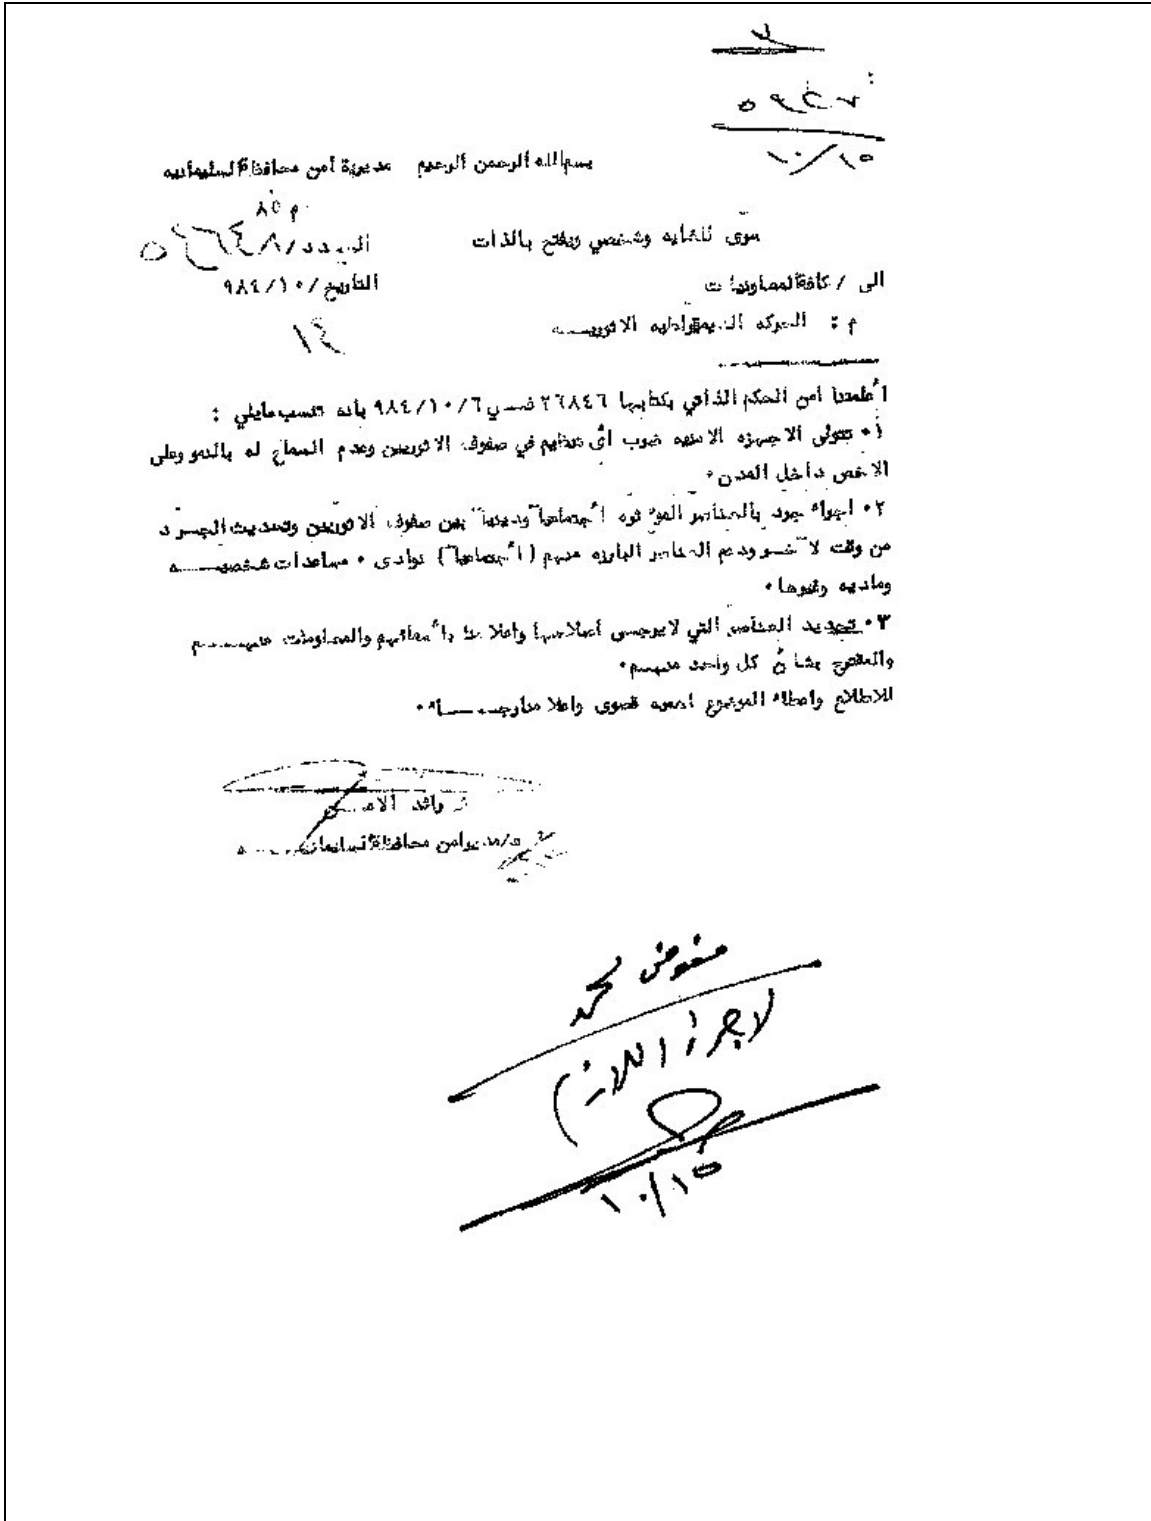 ٧٤٩٥
١٠/١٥
بسم الله الرحمن الرحيم مديرية أمن محافظة السليمانيه
م ش ٨٥
سري للغايه وشخصي ويفتح بالذات العدد/
الى / كافة المعاونيات التاريخ / ١٠/ ٩٨٤
١٤
م : الحركه الديمقراطيه الاثوريـــه
أعلمتنا امن الحكم الذاتي بكتابها ٢٦٨٤٦ فـي ٩٨٤/١٠/٦ بأنه تنسب مايلي :
١٠ تتولى الاجهزه الامنيه ضرب أى تنظيم في صفوف الاثوريين وعدم السماح له بالنمو وعلى
الاخص داخل المدن ٠
٢٠ اجراء جرد بالعناصر المؤثره أجتماعيا ودينيا بين صفوف الاثوريين وتحديث الجـرد
من وقت لآخـر ودعم العناصر البارزه منهم (أجتماعيا) نوادى ٠ مساعدات شخصيـــه
وماديه وغيرها ٠
٣٠ تحديد العناصر التي لايرجـى أصلاحها واعلامنا بأسمائهم والمعلومات عنهــم
والمقترح بشأن كل واحد منهـم ٠
للاطلاع واعطاء الموضوع اهميه قصوى واعلامنا رجــاء ٠
رائد الامــن
ع/مدير امن محافظة السليمانيـــه
مفوض محمد
لاجراء اللازم
١٠/١٥